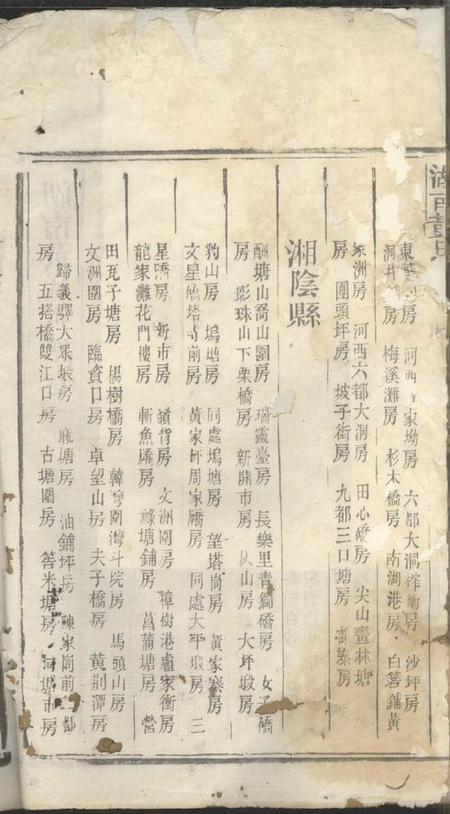 湖南黃氏
東 房 河西 家坳房 六都大洞 衝房 沙坪房
洞 房 梅溪灘房 杉木橋房 南湖港房 白箬鋪黃
洲房 河西六都大洞房 田心 房 尖山畫林塘
房 團頭坪房 坡子街房 九都三口塘房 泰房
湘陰縣
塘山喬山園房 瑞靈臺房 長樂里青 橋房 女 橋
房 影珠山下栗橋房 新開市房 山房 大坪塅房
豹山房 塢塘房 同處塢塘房 望塔崗房 黃家寨房
文星 塔寺前房 黃家坪周家 房 同處大平塅房 三
星 房 新市房 嶺背房 文洲圍房 樟樹港盧家衝房
龍家灘花門樓房 斬魚 房 祿塘鋪房 菖蒲塘房 營
田瓦子塘房 楊樹橋房 韓灣圍灣斗院房 馬頭山房
文洲圍房 臨資口房 卓望山房 夫子橋房 黃荊潭房
歸義驛大 塅房 麻塘房 油鋪坪房 陳家崗前 都
房 五搭橋雙江口房 古塘圍房 筶米塘房 塘市房